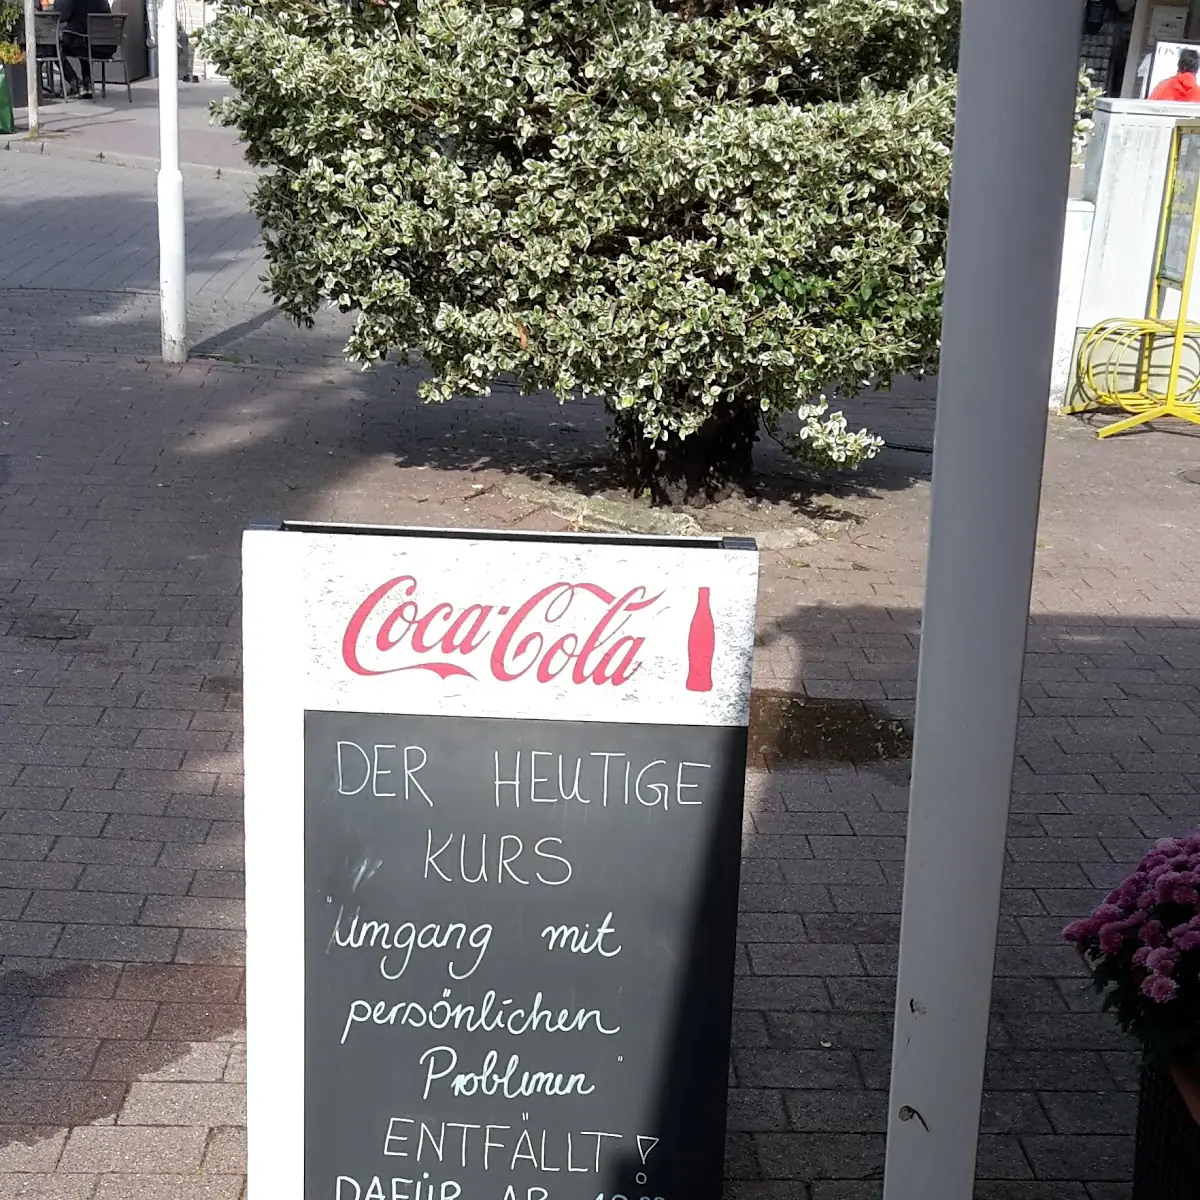 Coca-Cola
DER HEUTIGE
KURS
"Umgang mit
persönlichen
Problemen"
ENTFÄLLT!
DAFÜR AB